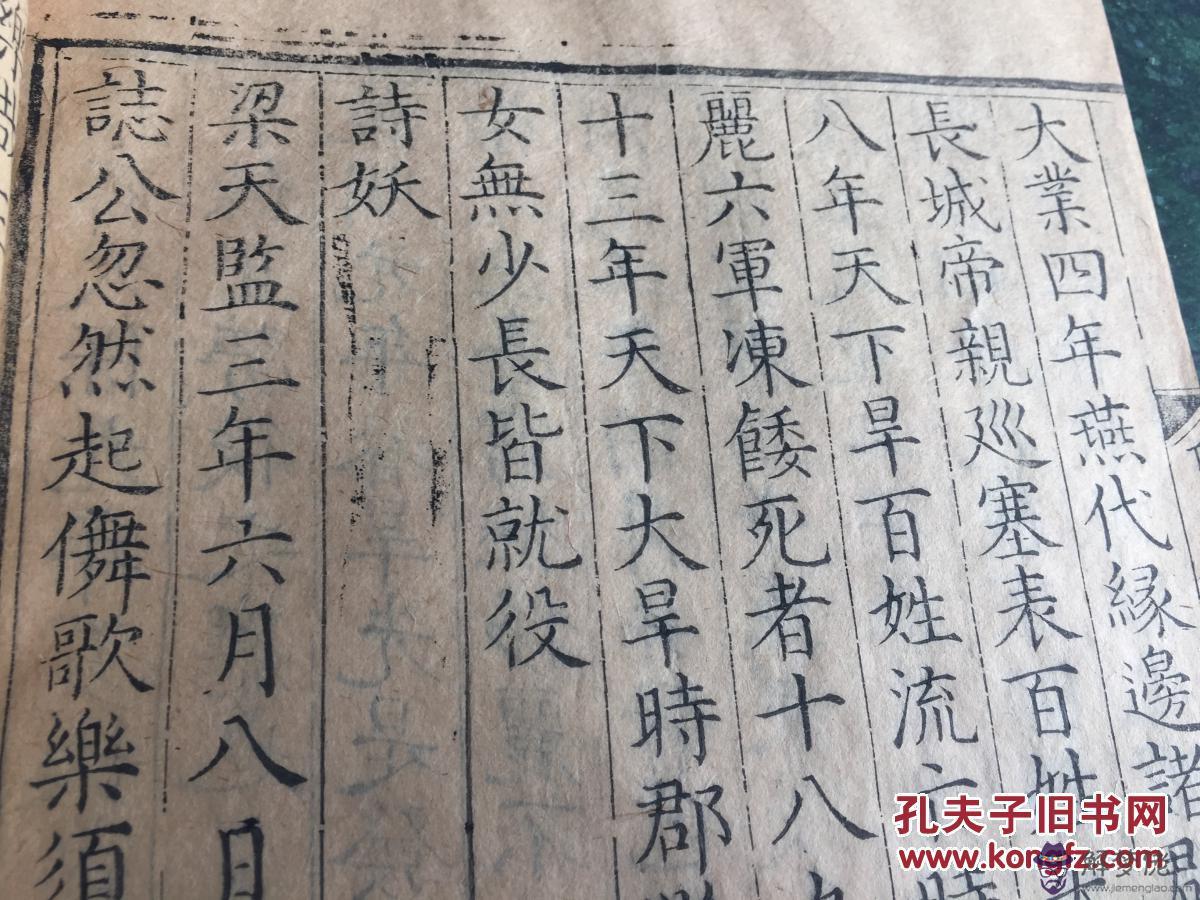 大業四年燕代緣邊諸
長城帝親廵塞表百姓
八年天下旱百姓流亡時
麗六軍凍餧死者十八九
十三年天下大旱時郡
女無少長皆就役
詩妖
梁天監三年六月八日
誌公忽然起儛歌樂須
孔夫子旧书网
www.kongfz.com
解梦佬
www.jiemenglao.com